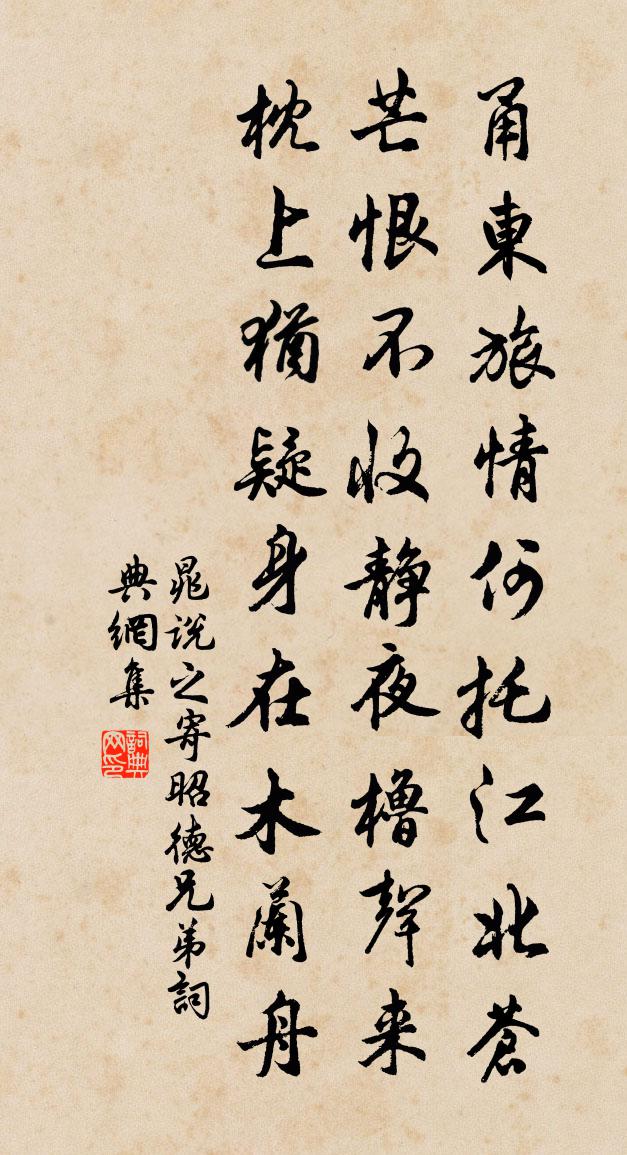 甬東旅情何托江北蒼
芒恨不收静夜櫓聲来
枕上猶疑身在木蘭舟
晁説之寄昭德兄弟詞
典網集
詞典網印